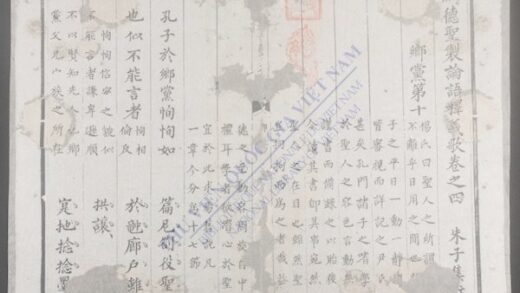 德聖製論語釋義歌卷之四 朱子集
鄉黨第十
楊氏曰聖人之所謂
不離乎日用之間也
子之平日一動一靜
皆審視而詳記之尹氏
甚矣孔門諸子之嗜學
於聖人之容色言動無
謹書而備錄之以貽後
今讀其書即其事宛然
聖人之在目也雖然聖
拘拘而為之者哉
德之至動容周旋自中
禮耳學者欲潛心於聖
宜於此求焉舊說凡
一章今分為十七節
孔子於鄉黨恂恂如
也似不能言者 恂相倫反
恂恂信實之貌似
不能言者謙卑遜順
不以賢知先人也鄉
黨父兄宗族之所在
役聖
廊戶雖
拱讓
地捻捻墨
THƯ VIỆN QUỐC GIA VIỆT NAM
NATIONAL LIBRARY OF VIETNAM